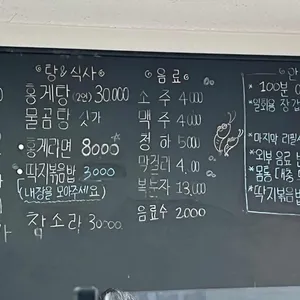 탕&식사
홍게탕 (2인) 30,000
물곰탕 싯가
홍게라면 8000
딱지볶음밥 3000
(내장을 모아주세요)
참소라 30000
음료
소주 4000
맥주 4000
청하 5000
막걸리 4000
복분자 13,000
음료수 2000
* 100분
* 일회용 장갑
* 마지막
* 외부 음료
* 몸통
* 딱지볶음밥